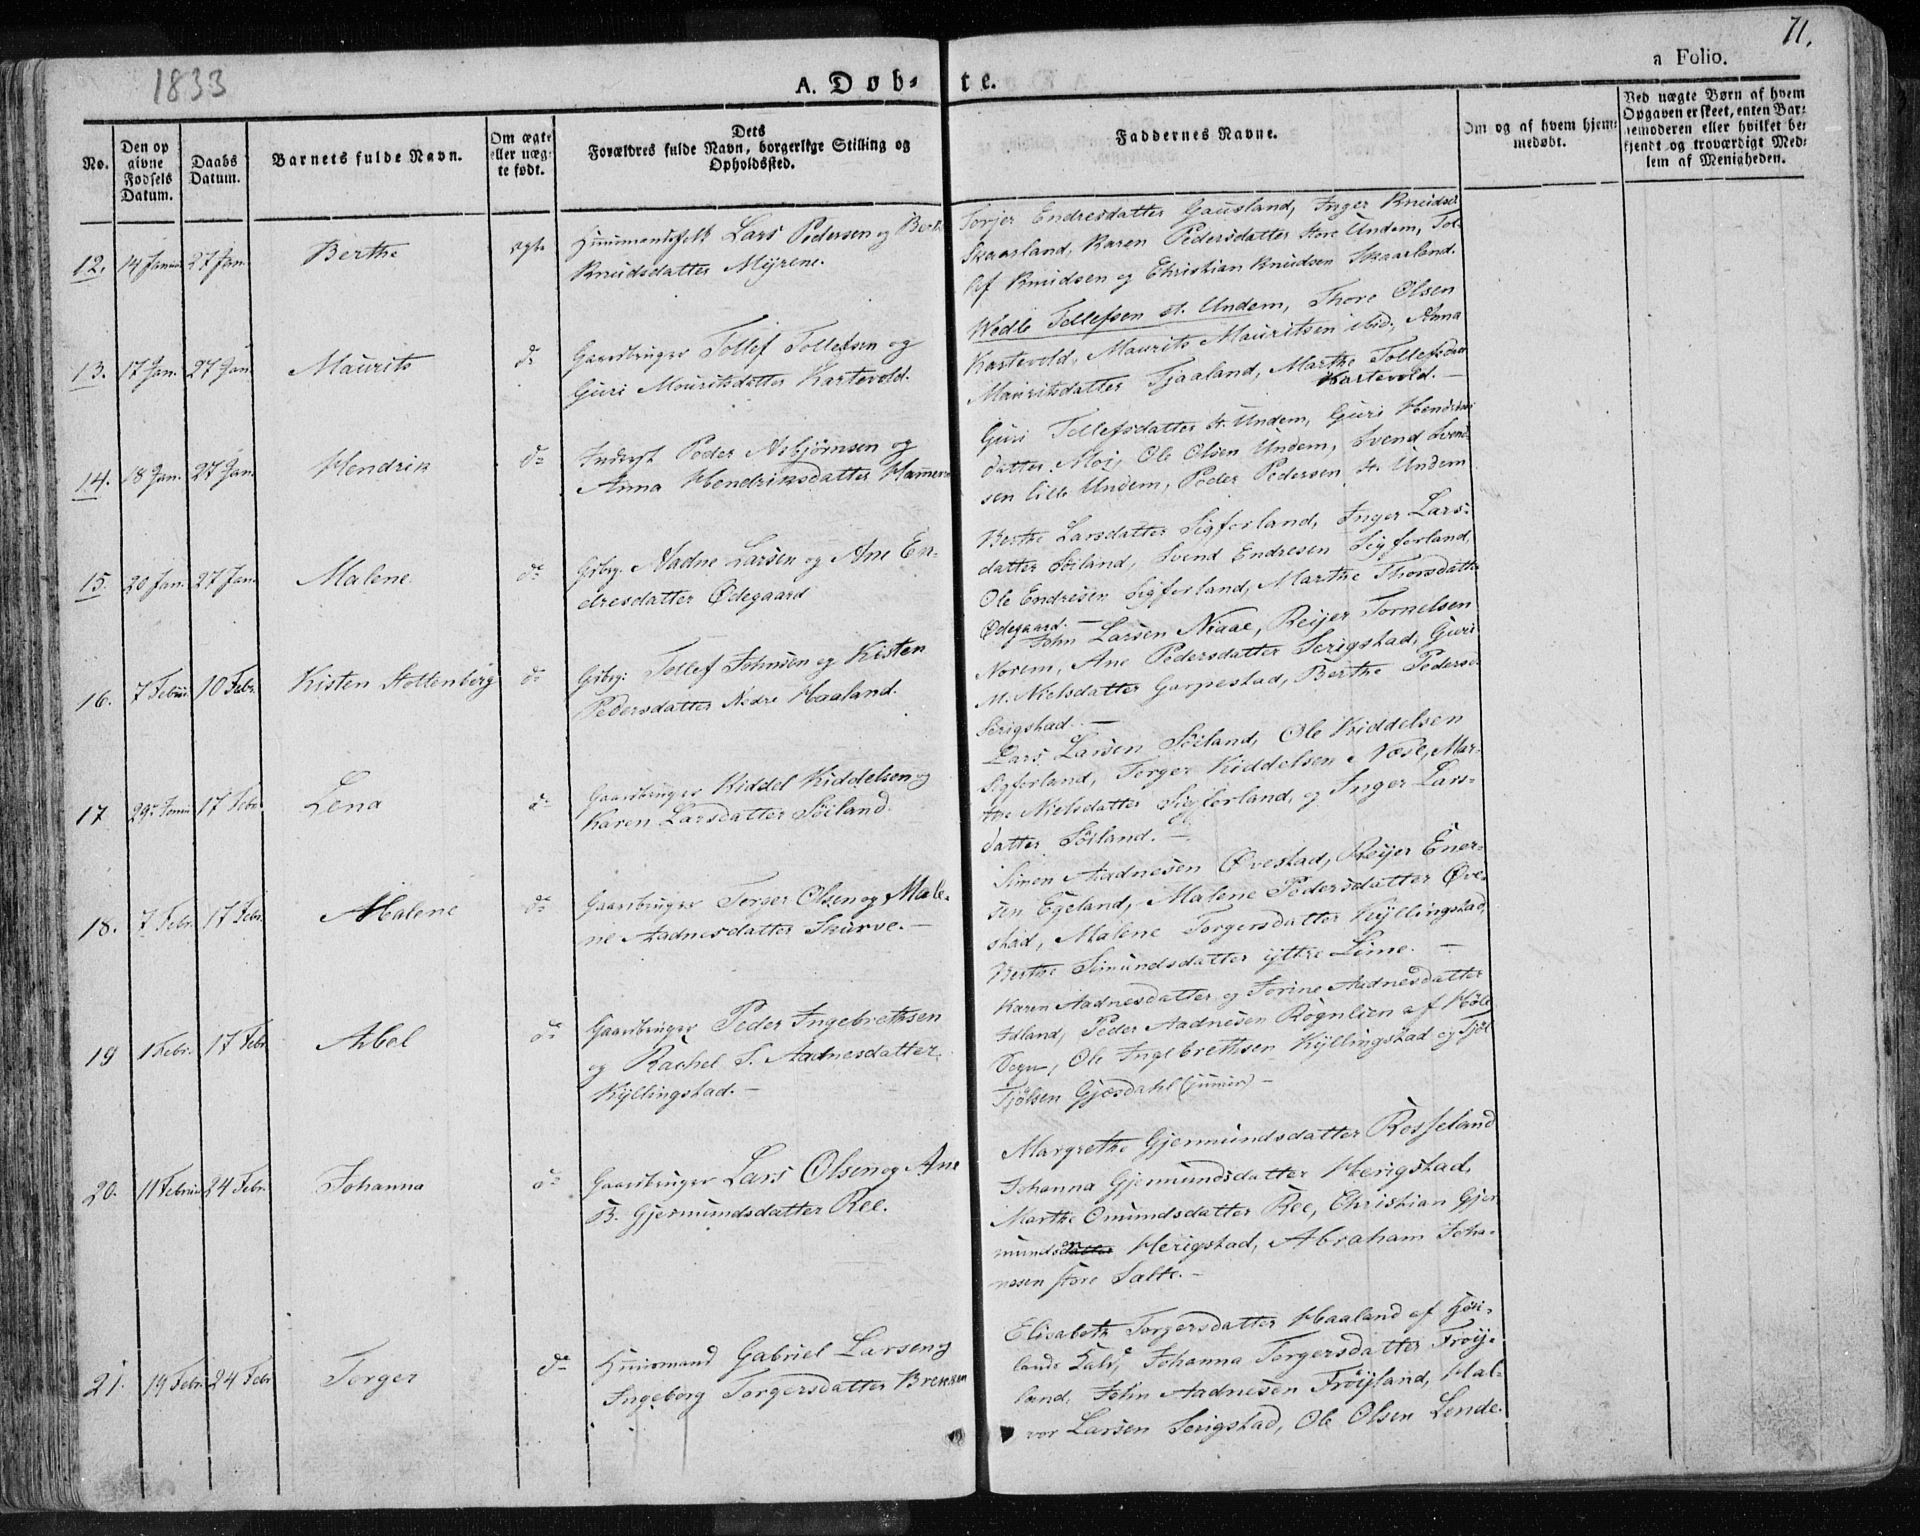 1833
A. Døb-
te.
a Folio.
71.
No.
Den op
givne
Fødsels
Datum.
Daabs
Datum.
Barnets fulde Navn.
Om ægte
eller uæg-
te født.
Dets
Forældres fulde Navn, borgerlige Stilling og
Opholdssted.
Faddernes Navne.
Om og af hvem hjem-
medøbt.
Ved uægte Børn af hvem
Opgaven er skeet, enten Bar-
nemoderen eller hvilket be-
kjendt og troværdigt Med-
lem af Menigheden.
12. 14 Januar 27 Jan. Berthe ægte Huusmandsfolk Lars Pedersen og
Knudsdatter Myrene.
Torjer Endresdatter Gausland, Inger Knudsd.
Skaarland, Karen Pedersdatter store Undem, Tol-
lef Knudsen og Christian Knudsen Skaarland.
13. 17 Jan. 27 Jan. Maurits do Gaardbruger Tollef Tollefsen og
Guri Mouritsdatter Kartevold.
Wedle Tollefsen st. Undem, Thore Olsen
Kartevold, Maurits Mauritsen ibid, Anna
Mauritsdatter Tjaaland, Marthe Tollefsdatter
Kartevold. —
14. 18 Jan. 27 Jan. Hendrik do Inderst Peder Asbjørnsen og
Anna Hendriksdatter
Guri Tollefsdatter st. Undem, Guri Hendriks
datter Moi, Ole Olsen Undem, Svend Svend-
sen lille Undem, Peder Pedersen st. Undem
15. 20 Jan. 27 Jan. Malene do Grbrg. Aadne Larsen og Ane En-
dresdatter Ødegaard
Berthe Larsdatter Sigforland, Inger Lars-
datter Söiland, Svend Endresen Sigforland,
Ole Endresen Sigforland, Marthe Thorsdatter
Ødegaard. —
16. 7 Februar 10 Febr. Kisten Stoltenberg do Grbrg: Tollef Johnsen og Kisten
Pedersdatter Nedre Haaland.
John Larsen Niaae, Reijer Tornelsen
Norem, Ane Pedersdatter Serigstad, Guri
M. Nielsdatter Garpestad, Berthe Pedersd
Serigstad. —
17. 29 Januar 17 Febr. Lena do Gaardbruger Kiddel Kiddelsen og
Karen Larsdatter Söiland.
Lars Larsen Söiland, Ole Kiddelsen
Sigforland, Torger Kiddelsen Næse, Mar-
the Nielsdatter Sigforland, og Inger Lars-
datter Söiland. —
18. 7 Febr. 17 Febr. Malene do Gaardbruger Torger Olsen og Male-
ne Aadnesdatter Skurve. —
Simon Aadnesen Øvestad, Reijer Ener-
sen Egeland, Malene Pedersdatter Øve-
stad, Malene Torgersdatter Kÿllingstad,
Berthe Simundsdatter ÿttre Lime. —
19 1 Febr. 17 Febr. Abel do Gaardbruger Peder Ingebrethsen
og Rachel S. Aadnesdatter
Kÿllingstad. —
Karen Aadnesdatter og Torine Aadnesdatter
Idland, Peder Aadnesen Rögnlien af Höle
Sogn, Ole Ingebrethsen Kÿllingstad og Tjöl
Tjölsen Gjæsdahl (junior) —
20. 11 Februar 24 Febr. Johanna do Gaardbruger Lars Olsen og Ane
B. Gjermundsdatter Ree.
Margrethe Gjermundsdatter Rosseland
Johanna Gjermundsdatter Herigstad,
Marthe Omundsdatter Ree, Christian Gjer
munds Herigstad, Abraham Joha-
nesen store Salte. —
21. 19 Febr. 24 Febr Torger do Huusmand Gabriel Larsen og
Ingeborg Torgersdatter
Elisabeth Torgersdatter Haaland af Höi-
lands Johanna Torgersdatter Fröÿ-
land, John Aadnesen Fröÿland, Hal-
vor Larsen Serigstad, Ole Olsen Lende.